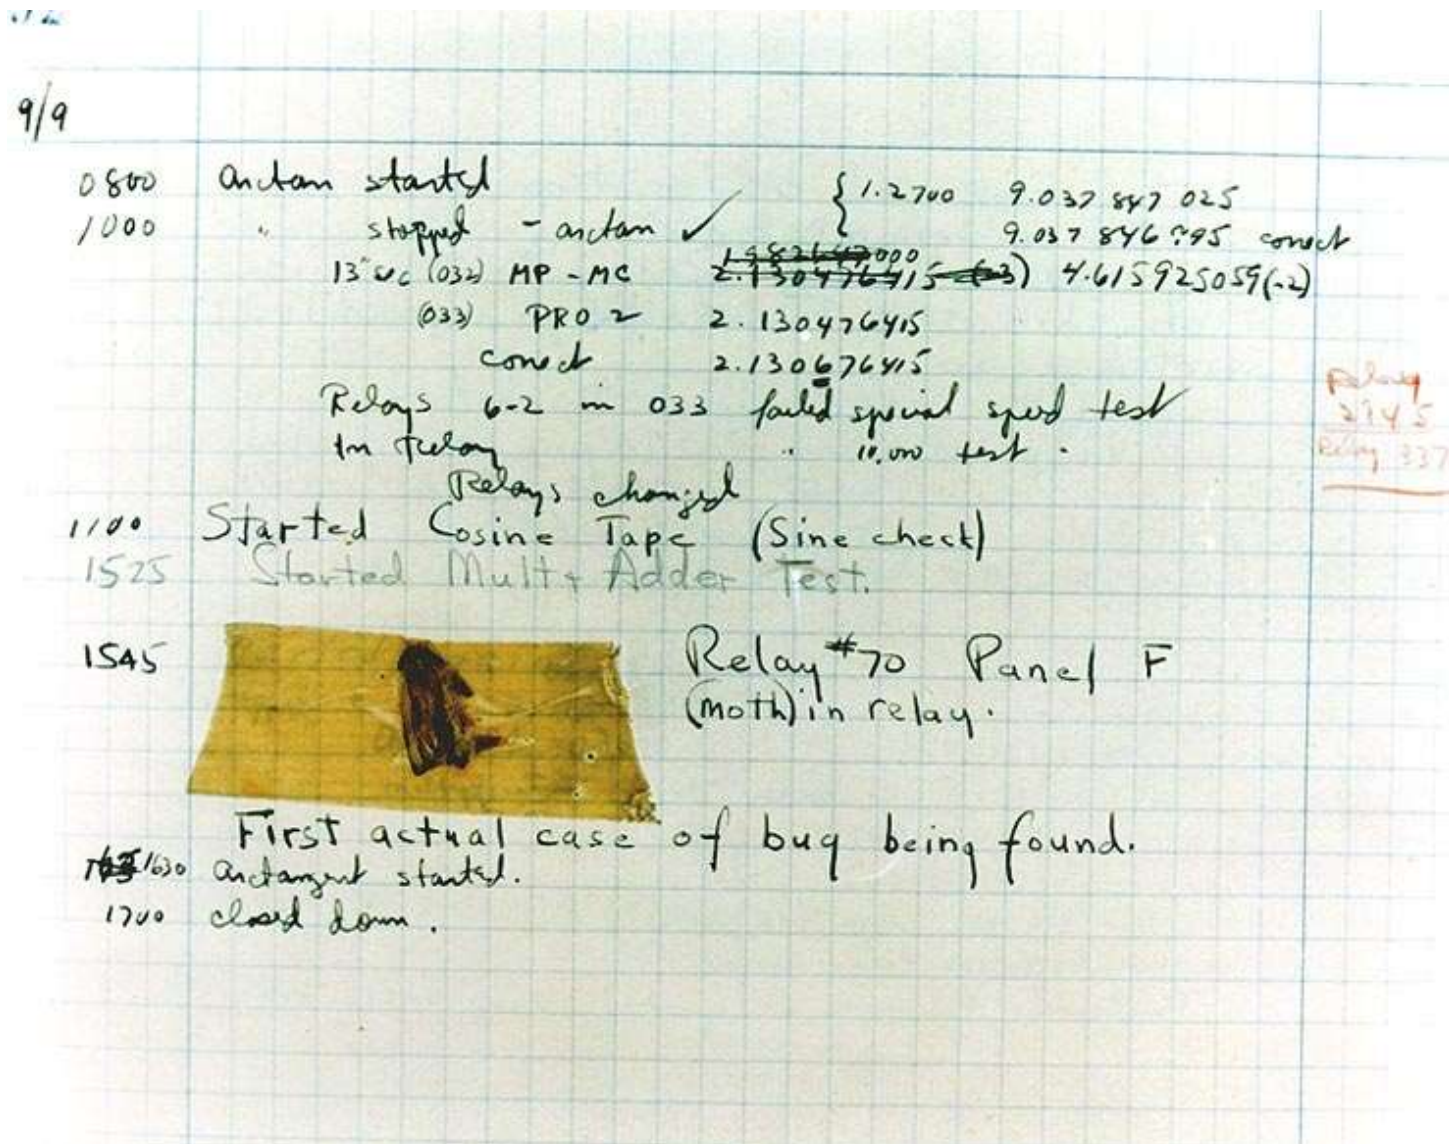 9/9
0800 arctan started { 1.2700 9.037 847 025
1000 " stopped - arctan ✓ 9.037 846 795 correct
13" (032) MP - MC 2.130476415 (-3) 4.615925059(-2)
(033) PRO 2 2.130476415
correct 2.130676415
Relays 6-2 in 033 failed special speed test
In relay " 10,000 test .
Relays changed
Relay
Relay 337
1100 Started Cosine Tape (Sine check)
1525 Started Mult + Adder Test.
1545 Relay #70 Panel F
(moth) in relay.
First actual case of bug being found.
1630 arctangent started.
1700 closed down.